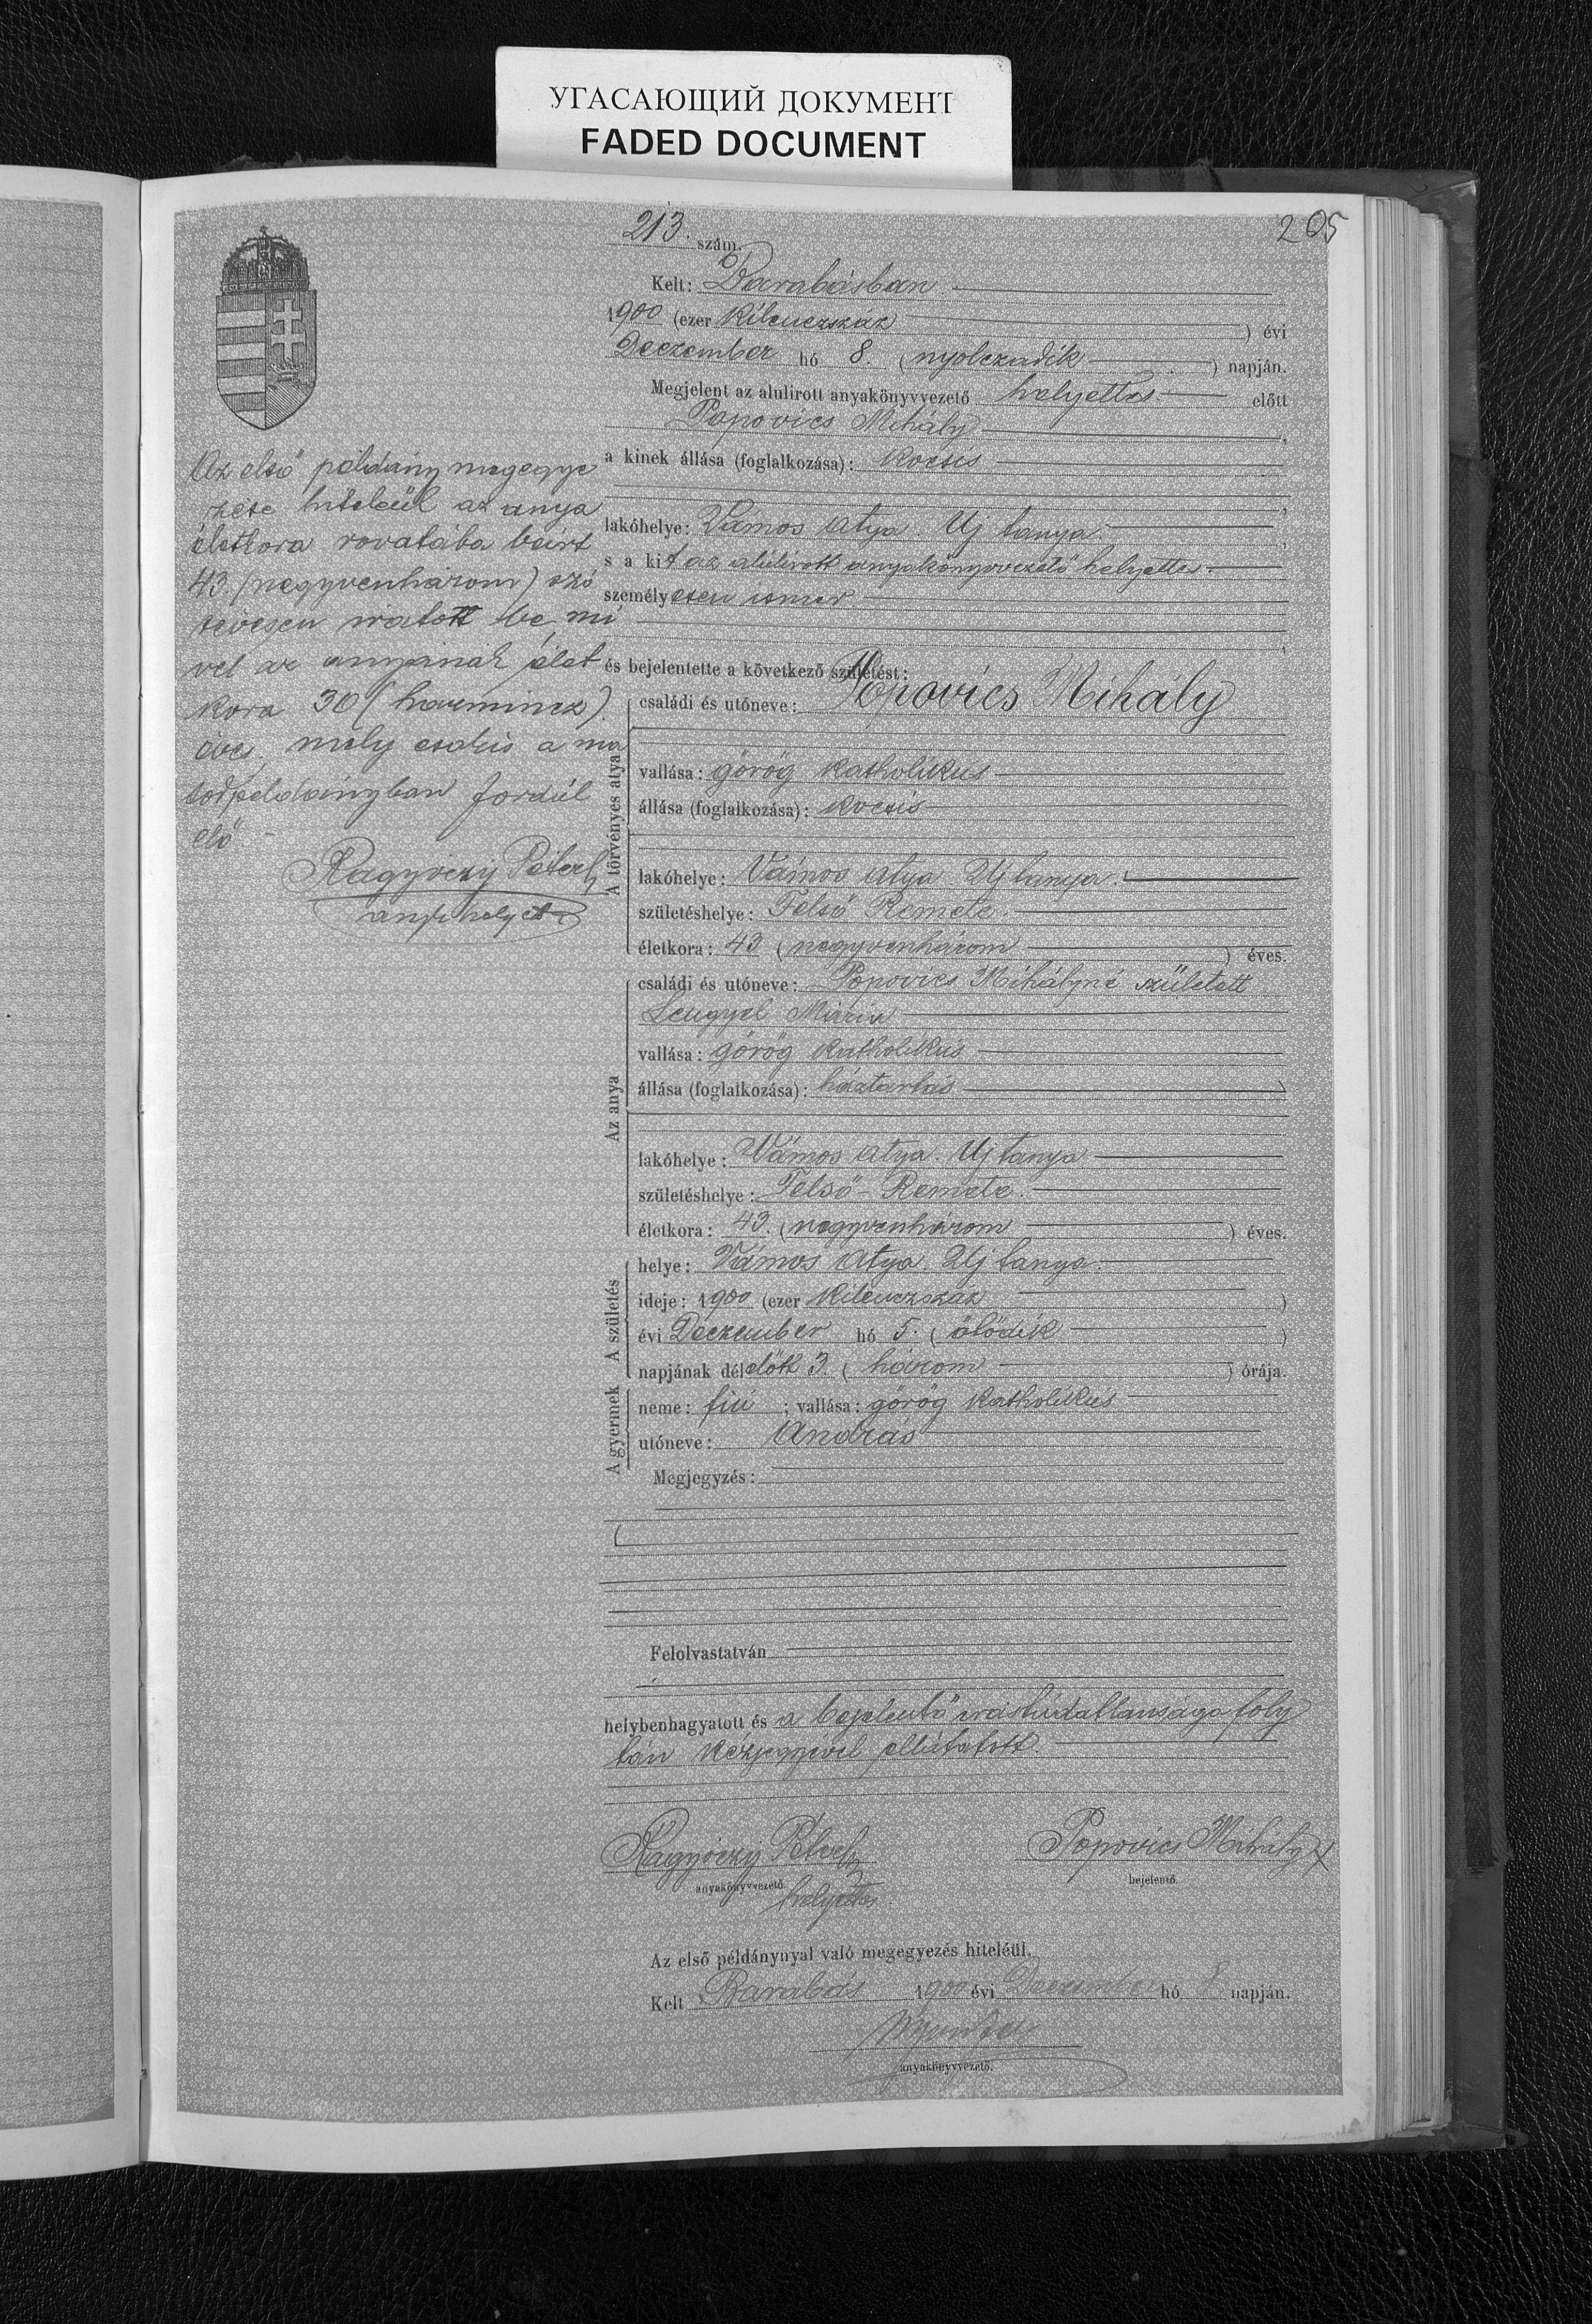 УГАСАЮЩИЙ ДОКУМЕНТ
FADED DOCUMENT
205
213. szám.
Kelt: Barabásban
1900 (ezer kilenczszáz) évi
Deczember hó 8. (nyolczadik) napján.
Megjelent az alulirott anyakönyvvezető helyettes előtt
Popovics Mihály,
a kinek állása (foglalkozása): kocsis
lakóhelye: Vámos atya. Uj tanya.
s a kit az alulirott anyakönyvvezető helyettes
személyesen ismer.
és bejelentette a következő születést:
A törvényes atya
családi és utóneve: Popovics Mihály
vallása: görög katholikus
állása (foglalkozása): kocsis
lakóhelye: Vámos atya Uj tanya.
születéshelye: Felső Remete.
életkora: 43 (negyvenhárom) éves.
Az anya
családi és utóneve: Popovics Mihályné született
Lengyel Mária
vallása: görög katholikus
állása (foglalkozása): háztartás
lakóhelye: Vámos atya. Uj tanya
születéshelye: Felső-Remete.
életkora: 43. (negyvenhárom) éves.
A születés
helye: Vámos Atya. Uj tanya.
ideje: 1900 (ezer kilenczszáz)
évi Deczember hó 5. (ötödik)
napjának délelőtt 3. (három) órája.
A gyermek
neme: fiú; vallása: görög katholikus
utóneve: András
Megjegyzés:
Felolvastatván
helybenhagyatott és a bejelentő irástudatlansága foly
tán kézjegyével elláttatott.
Popovics Mihály x
anyakönyvvezető
helyettes
bejelentő.
Az első példánynyal való megegyezés hiteléül.
Kelt Barabás 1900 évi Deczember hó 8 napján.
anyakönyvvezető.
Az első példány megegye
zése hiteléül az anya
életkora rovatába beirt
43. (negyvenhárom) szó
tévesen iratott be mi
vel az anyának élet
kora 30 (harmincz)
éves, mely csakis a má
sodpéldányban fordúl
elő.